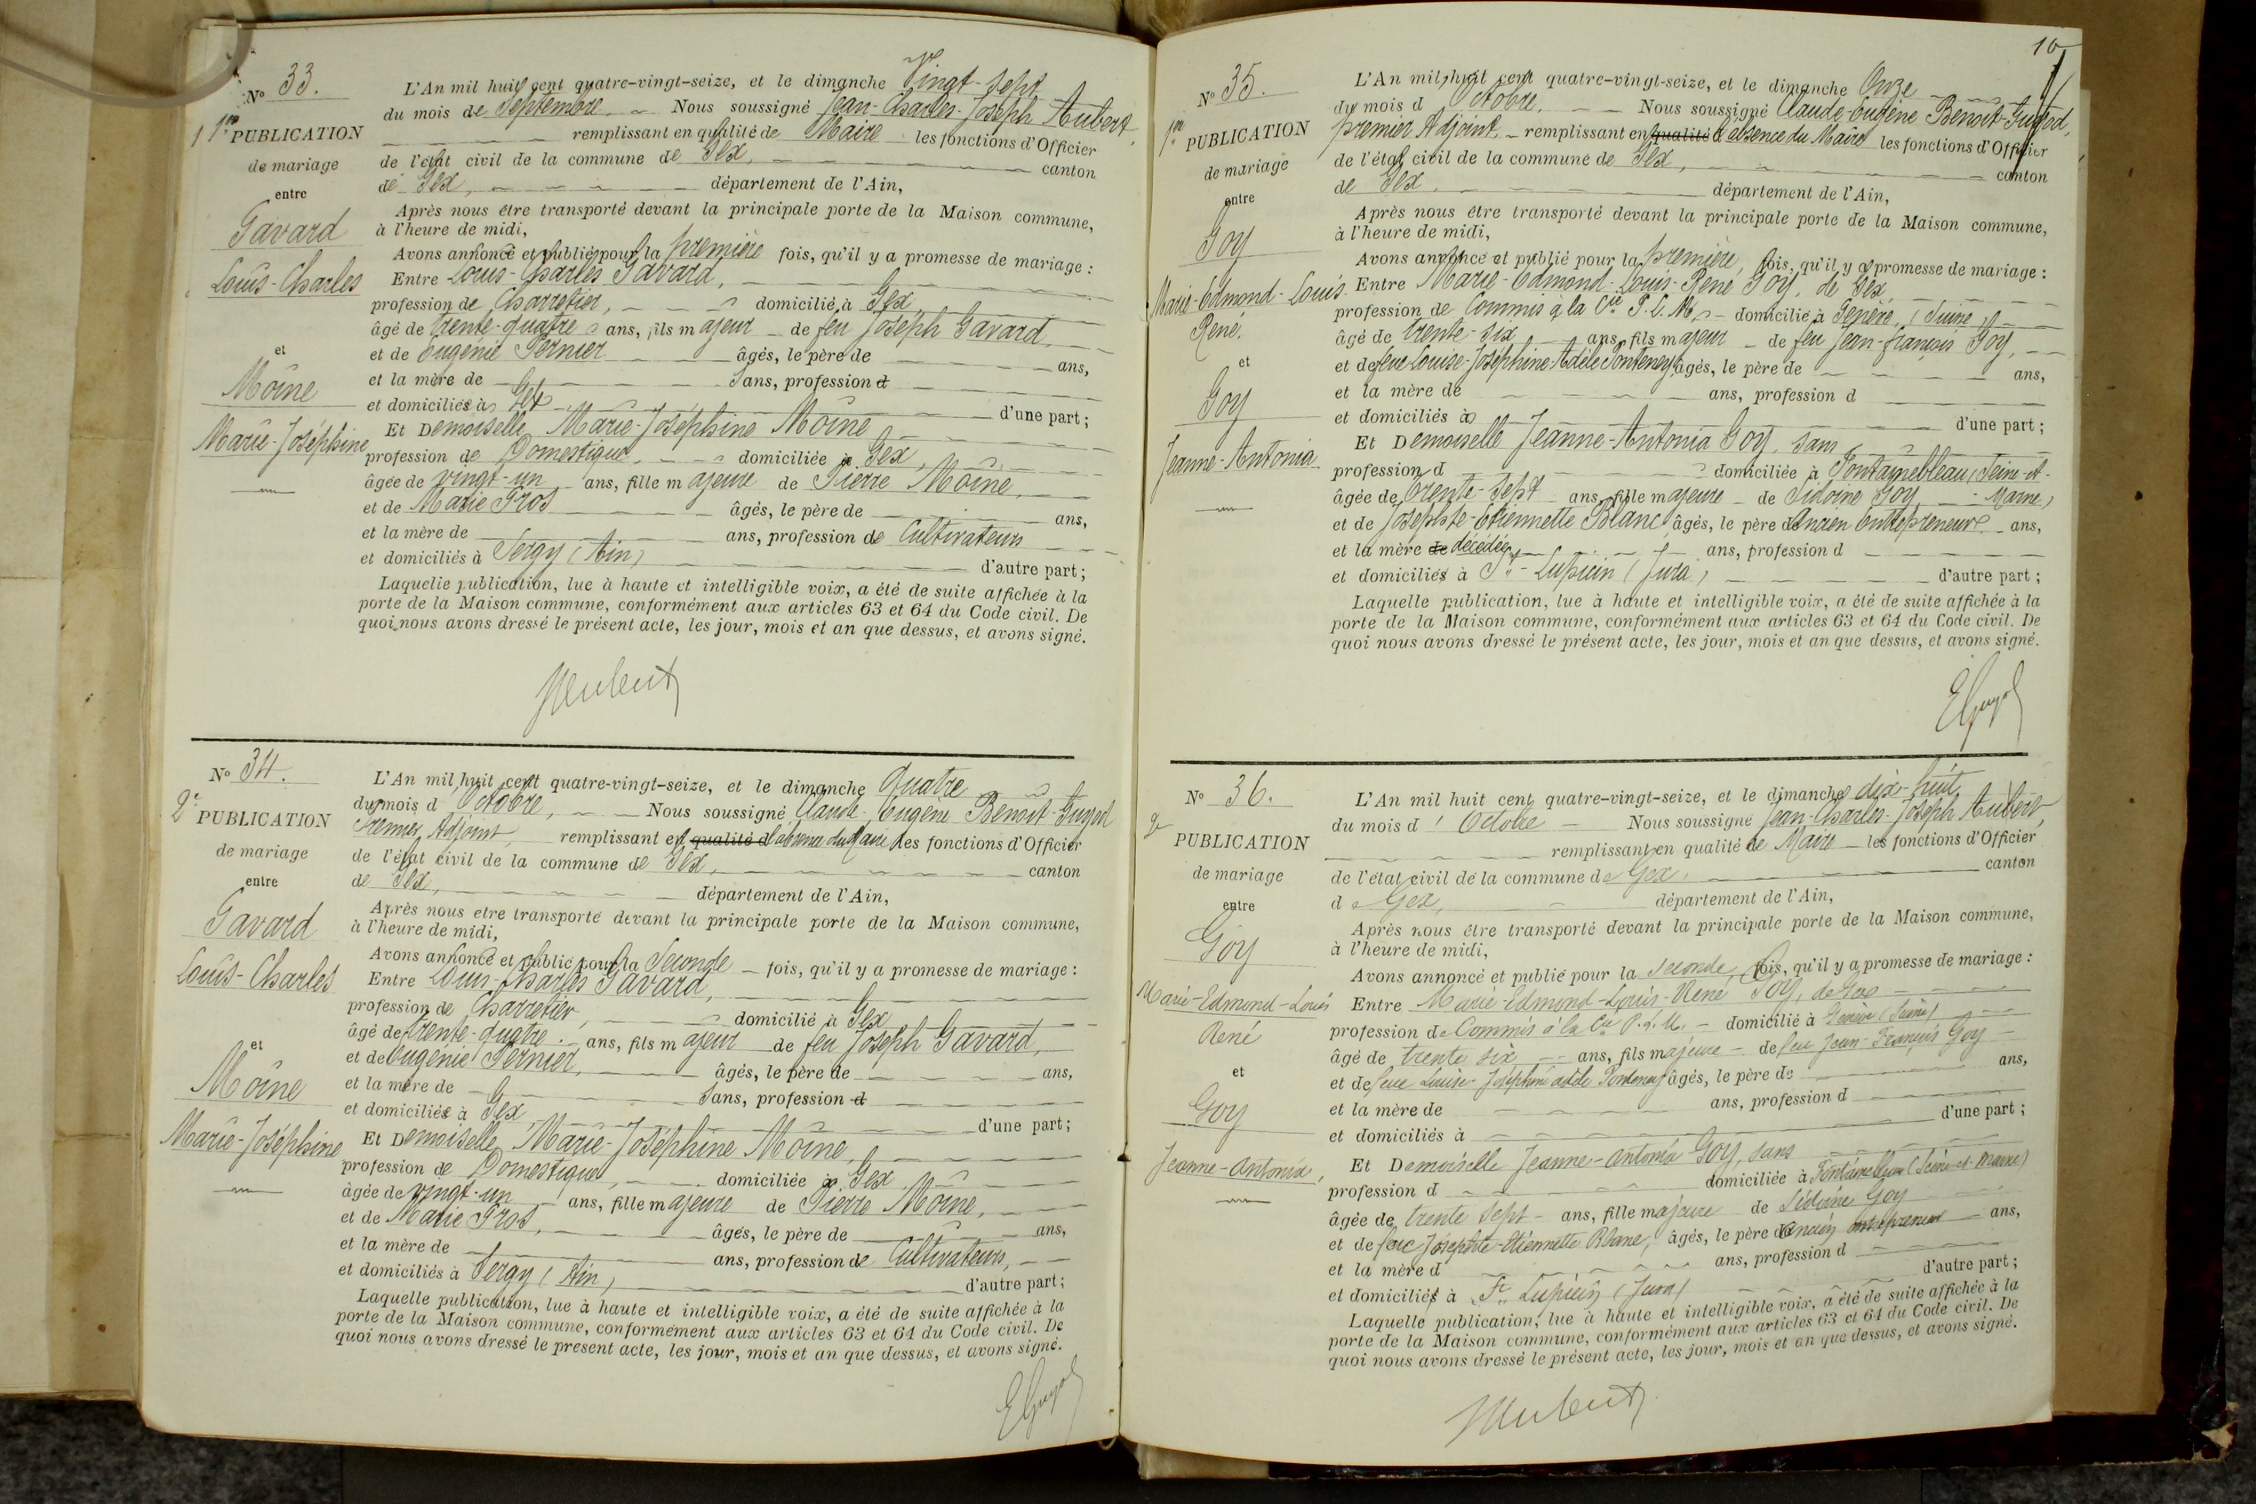 N° 33.
1re PUBLICATION
de mariage
entre
Gavard
Louis-Charles
et
Moine
Marie-Joséphine
L'An mil huit cent quatre-vingt-seize, et le dimanche Vingt-sept
du mois de Septembre. Nous soussigné Jean-Charles-Joseph Aubert,
remplissant en qualité de Maire les fonctions d'Officier
de l'état civil de la commune de Gex, canton
de Gex, département de l'Ain,
Après nous être transporté devant la principale porte de la Maison commune,
à l'heure de midi,
Avons annoncé et publié pour la première fois, qu'il y a promesse de mariage :
Entre Louis-Charles Gavard,
profession de Charretier, domicilié à Gex
âgé de trente-quatre ans, fils majeur de feu Joseph Gavard,
et de Eugénie Pernier âgés, le père de ans,
et la mère de Sans, profession d
et domiciliés à Gex d'une part ;
Et Demoiselle Marie-Joséphine Moine
profession de Domestique, domiciliée à Gex,
âgée de vingt-un ans, fille majeure de Pierre Moine,
et de Marie Gros âgés, le père de ans,
et la mère de ans, profession de Cultivateurs
et domiciliés à Sergy (Ain) d'autre part ;
Laquelle publication, lue à haute et intelligible voix, a été de suite affichée à la
porte de la Maison commune, conformément aux articles 63 et 64 du Code civil. De
quoi nous avons dressé le présent acte, les jour, mois et an que dessus, et avons signé.
N° 34.
2e PUBLICATION
de mariage
entre
Gavard
Louis-Charles
et
Moine
Marie-Joséphine
L'An mil huit cent quatre-vingt-seize, et le dimanche Quatre
du mois d'Octobre, Nous soussigné Claude-Eugène Benoit-Guyod
Premier Adjoint, remplissant en qualité d l'absence du Maire les fonctions d'Officier
de l'état civil de la commune de Gex, canton
de Gex, département de l'Ain,
Après nous être transporté devant la principale porte de la Maison commune,
à l'heure de midi,
Avons annoncé et publié pour la Seconde fois, qu'il y a promesse de mariage :
Entre Louis-Charles Gavard,
profession de Charretier, domicilié à Gex
âgé de trente-quatre ans, fils majeur de feu Joseph Gavard,
et de Eugénie Pernier, âgés, le père de ans,
et la mère de Sans, profession d
et domiciliés à Gex d'une part ;
Et Demoiselle Marie-Joséphine Moine,
profession de Domestique, domiciliée à Gex
âgée de vingt-un ans, fille majeure de Pierre Moine,
et de Marie Gros, âgés, le père de ans,
et la mère de ans, profession de Cultivateurs,
et domiciliés à Sergy (Ain) d'autre part ;
Laquelle publication, lue à haute et intelligible voix, a été de suite affichée à la
porte de la Maison commune, conformément aux articles 63 et 64 du Code civil. De
quoi nous avons dressé le présent acte, les jour, mois et an que dessus, et avons signé.
10
N° 35.
1re PUBLICATION
de mariage
entre
Goy
Marie-Edmond-Louis-
René.
et
Goy
Jeanne-Antonia
L'An mil huit cent quatre-vingt-seize, et le dimanche Onze
du mois d'Octobre. Nous soussigné Claude-Eugène Benoit-Guyod,
premier Adjoint, remplissant en qualité d l'absence du Maire les fonctions d'Officier
de l'état civil de la commune de Gex, canton
de Gex. département de l'Ain,
Après nous être transporté devant la principale porte de la Maison commune,
à l'heure de midi,
Avons annoncé et publié pour la première, fois, qu'il y a promesse de mariage :
Entre Marie-Edmond-Louis-René Goy, de Gex
profession de Commis à la Cie P. L. M. domicilié à Genève, (Suisse)
âgé de trente-six ans, fils majeur de feu Jean-François Goy,
et de feue Louise-Joséphine-Adèle Ponteney âgés, le père de ans,
et la mère de ans, profession d
et domiciliés à d'une part ;
Et Demoiselle Jeanne-Antonia Goy, sans
profession d domiciliée à Fontainebleau (Seine-et-
âgée de trente-sept ans, fille majeure de Sidoine Goy Marne)
et de Josephte-Etiennette Blanc âgés, le père de Ancien Entrepreneur ans,
et la mère de décédée, ans, profession d
et domiciliés à St-Lupicin (Jura) d'autre part ;
Laquelle publication, lue à haute et intelligible voix, a été de suite affichée à la
porte de la Maison commune, conformément aux articles 63 et 64 du Code civil. De
quoi nous avons dressé le présent acte, les jour, mois et an que dessus, et avons signé.
N° 36.
2e PUBLICATION
de mariage
entre
Goy
Marie-Edmond-Louis
René
et
Goy
Jeanne-Antonia,
L'An mil huit cent quatre-vingt-seize, et le dimanche dix-huit
du mois d'Octobre Nous soussigné Jean-Charles-Joseph Aubert,
remplissant en qualité de Maire les fonctions d'Officier
de l'état civil de la commune de Gex, canton
de Gex, département de l'Ain,
Après nous être transporté devant la principale porte de la Maison commune,
à l'heure de midi,
Avons annoncé et publié pour la seconde fois, qu'il y a promesse de mariage :
Entre Marie-Edmond-Louis-René Goy, de Gex
profession de Commis à la Cie P. L. M. domicilié à Genève (Suisse)
âgé de trente six ans, fils majeure de feu Jean-François Goy
et de feue Louise Joséphine adèle Ponteney âgés, le père de ans,
et la mère de ans, profession d
et domiciliés à d'une part ;
Et Demoiselle Jeanne-Antonia Goy, sans
profession d domiciliée à Fontainebleau (Seine-et-Marne)
âgée de trente sept ans, fille majeure de Sidoine Goy
et de feue Josephte-Etiennette Blanc, âgés, le père de ancien entrepreneur ans,
et la mère d ans, profession d
et domiciliés à St Lupicin (Jura) d'autre part ;
Laquelle publication, lue à haute et intelligible voix, a été de suite affichée à la
porte de la Maison commune, conformément aux articles 63 et 64 du Code civil. De
quoi nous avons dressé le présent acte, les jour, mois et an que dessus, et avons signé.